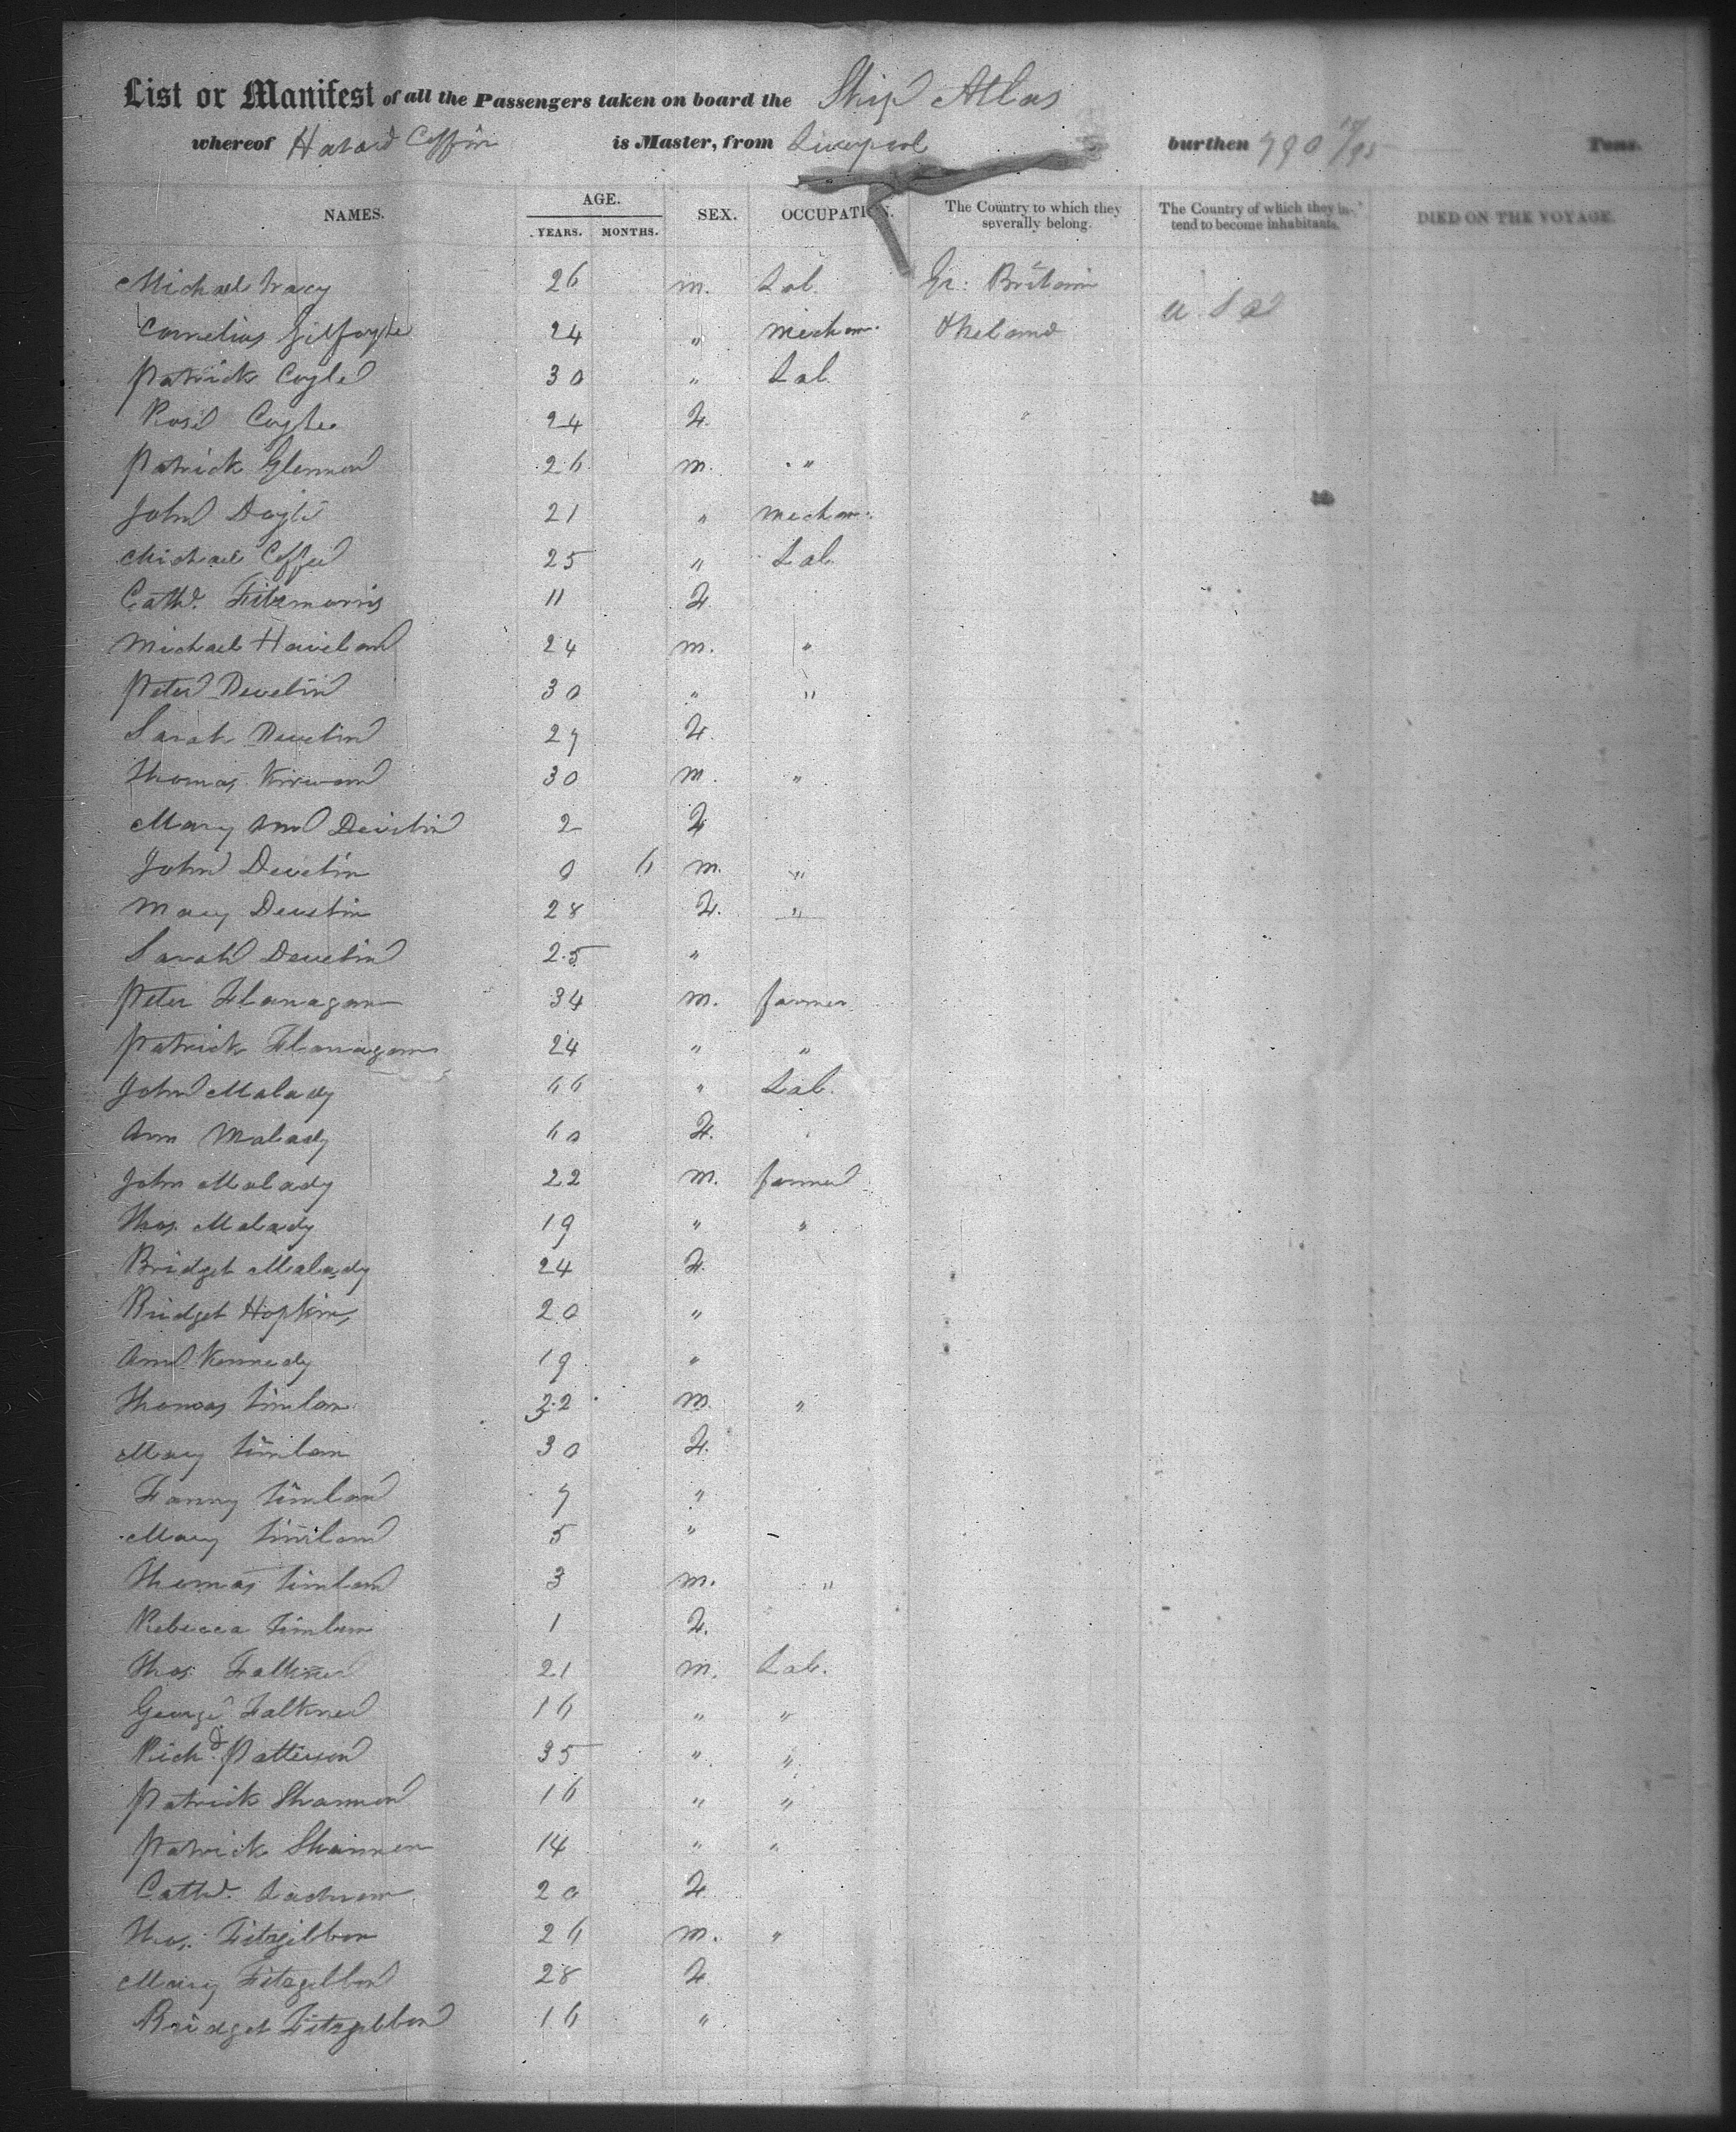 List or Manifest of all the Passengers taken on board the Ship Atlas
whereof Coffin is Master, from Liverpool burthen 790 Tons.
NAMES. AGE. SEX. OCCUPATION. The Country to which they severally belong. The Country of which they intend to become inhabitants. DIED ON THE VOYAGE.
YEARS. MONTHS.
Michael Tracy 26 m. Lab. Gr: Britain
Cornelius Gilfoyle 24 " mechan. Ireland U.S.A
Patrick Coyle 30 " Lab.
Rose Coyle 24 F.
Patrick Glennon 26 m. "
John Doyle 21 " mechan.
Michael Coffee 25 " Lab.
Cathe. Fitzmorris 11 F.
Michael Haviland 24 m. "
Peter Develin 30 " "
Sarah Develin 27 F.
Thomas Kirwand 30 m. "
Mary Ann Develin 2 F
John Develin 0 6 m. "
Mary Develin 28 F. "
Sarah Develin 25 "
Peter Flanagan 34 m. farmer.
Patrick Flanagan 24 " "
John Malady 66 " Lab.
Ann Malady 60 F.
John Malady 22 m. farmer
Thos. Malady 19 " "
Bridget Malady 24 F.
Bridget Hopkins 20 "
Ann Kennedy 19 "
Thomas Timlan 32 m. "
Mary Timlan 30 F.
Fanny Timlan 7 "
Mary Timlan 5 "
Thomas Timlan 3 m. "
Rebecca Timlan 1 F.
Thos. Falkner 21 m. Lab.
George Falkner 16 " "
Richd. Patterson 35 " "
Patrick Shannon 16 " "
Patrick Shannon 14 " "
Cathe. 20 F
Thos. Fitzgibbon 26 m. "
Mary Fitzgibbon 28 F
Bridget Fitzgibbon 16 "